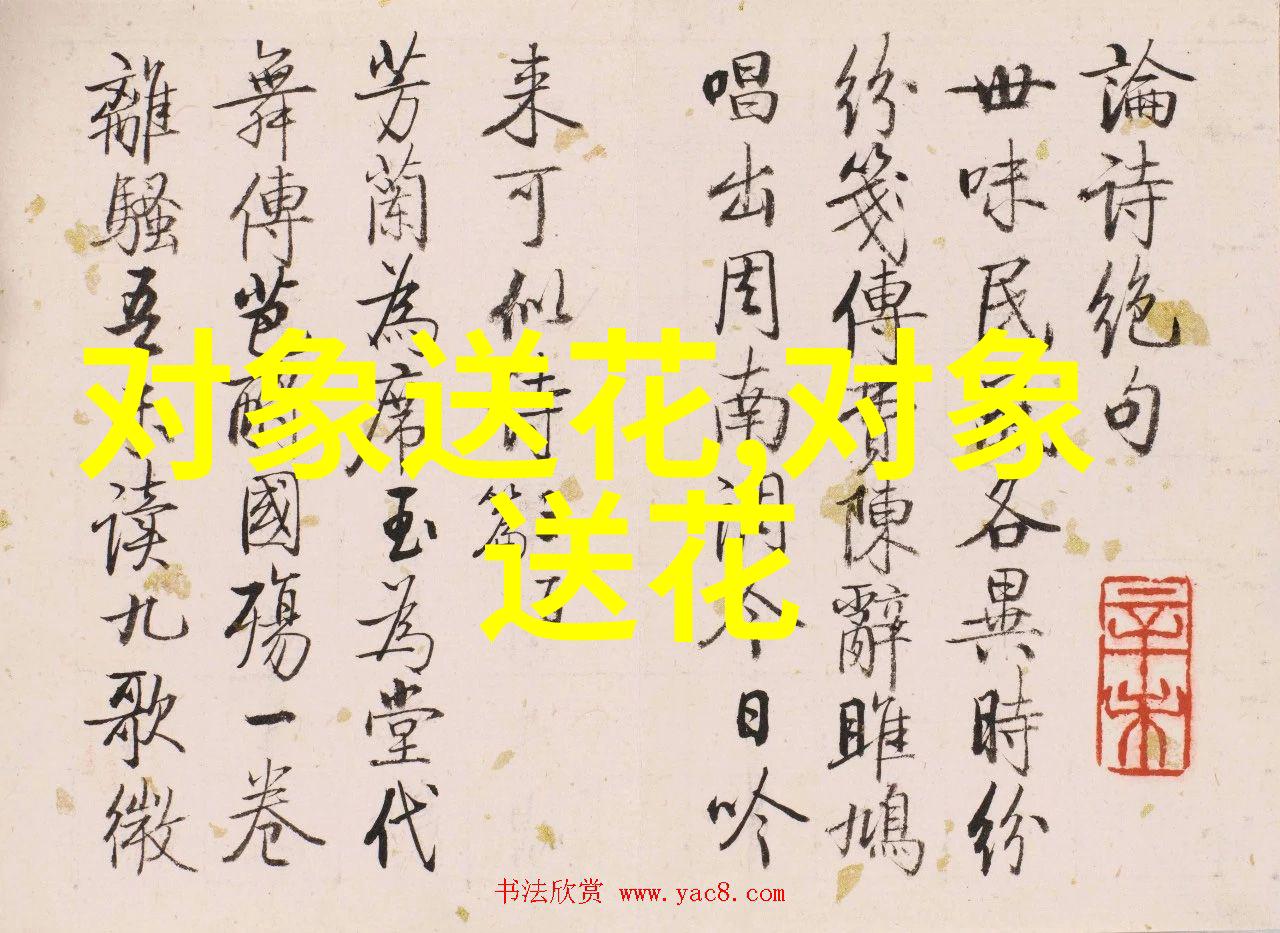 論诗絕句
世味民各異時紛
紛箋傳陳辭雎鳩
唱出周南調今日吟
来可似诗篇
芳蘭為席玉為堂代
舞傳芭醉國殤一卷
離騷吾讀九歌微
辛未
对象送花,对象
送花
书法欣赏 www.yac8.com